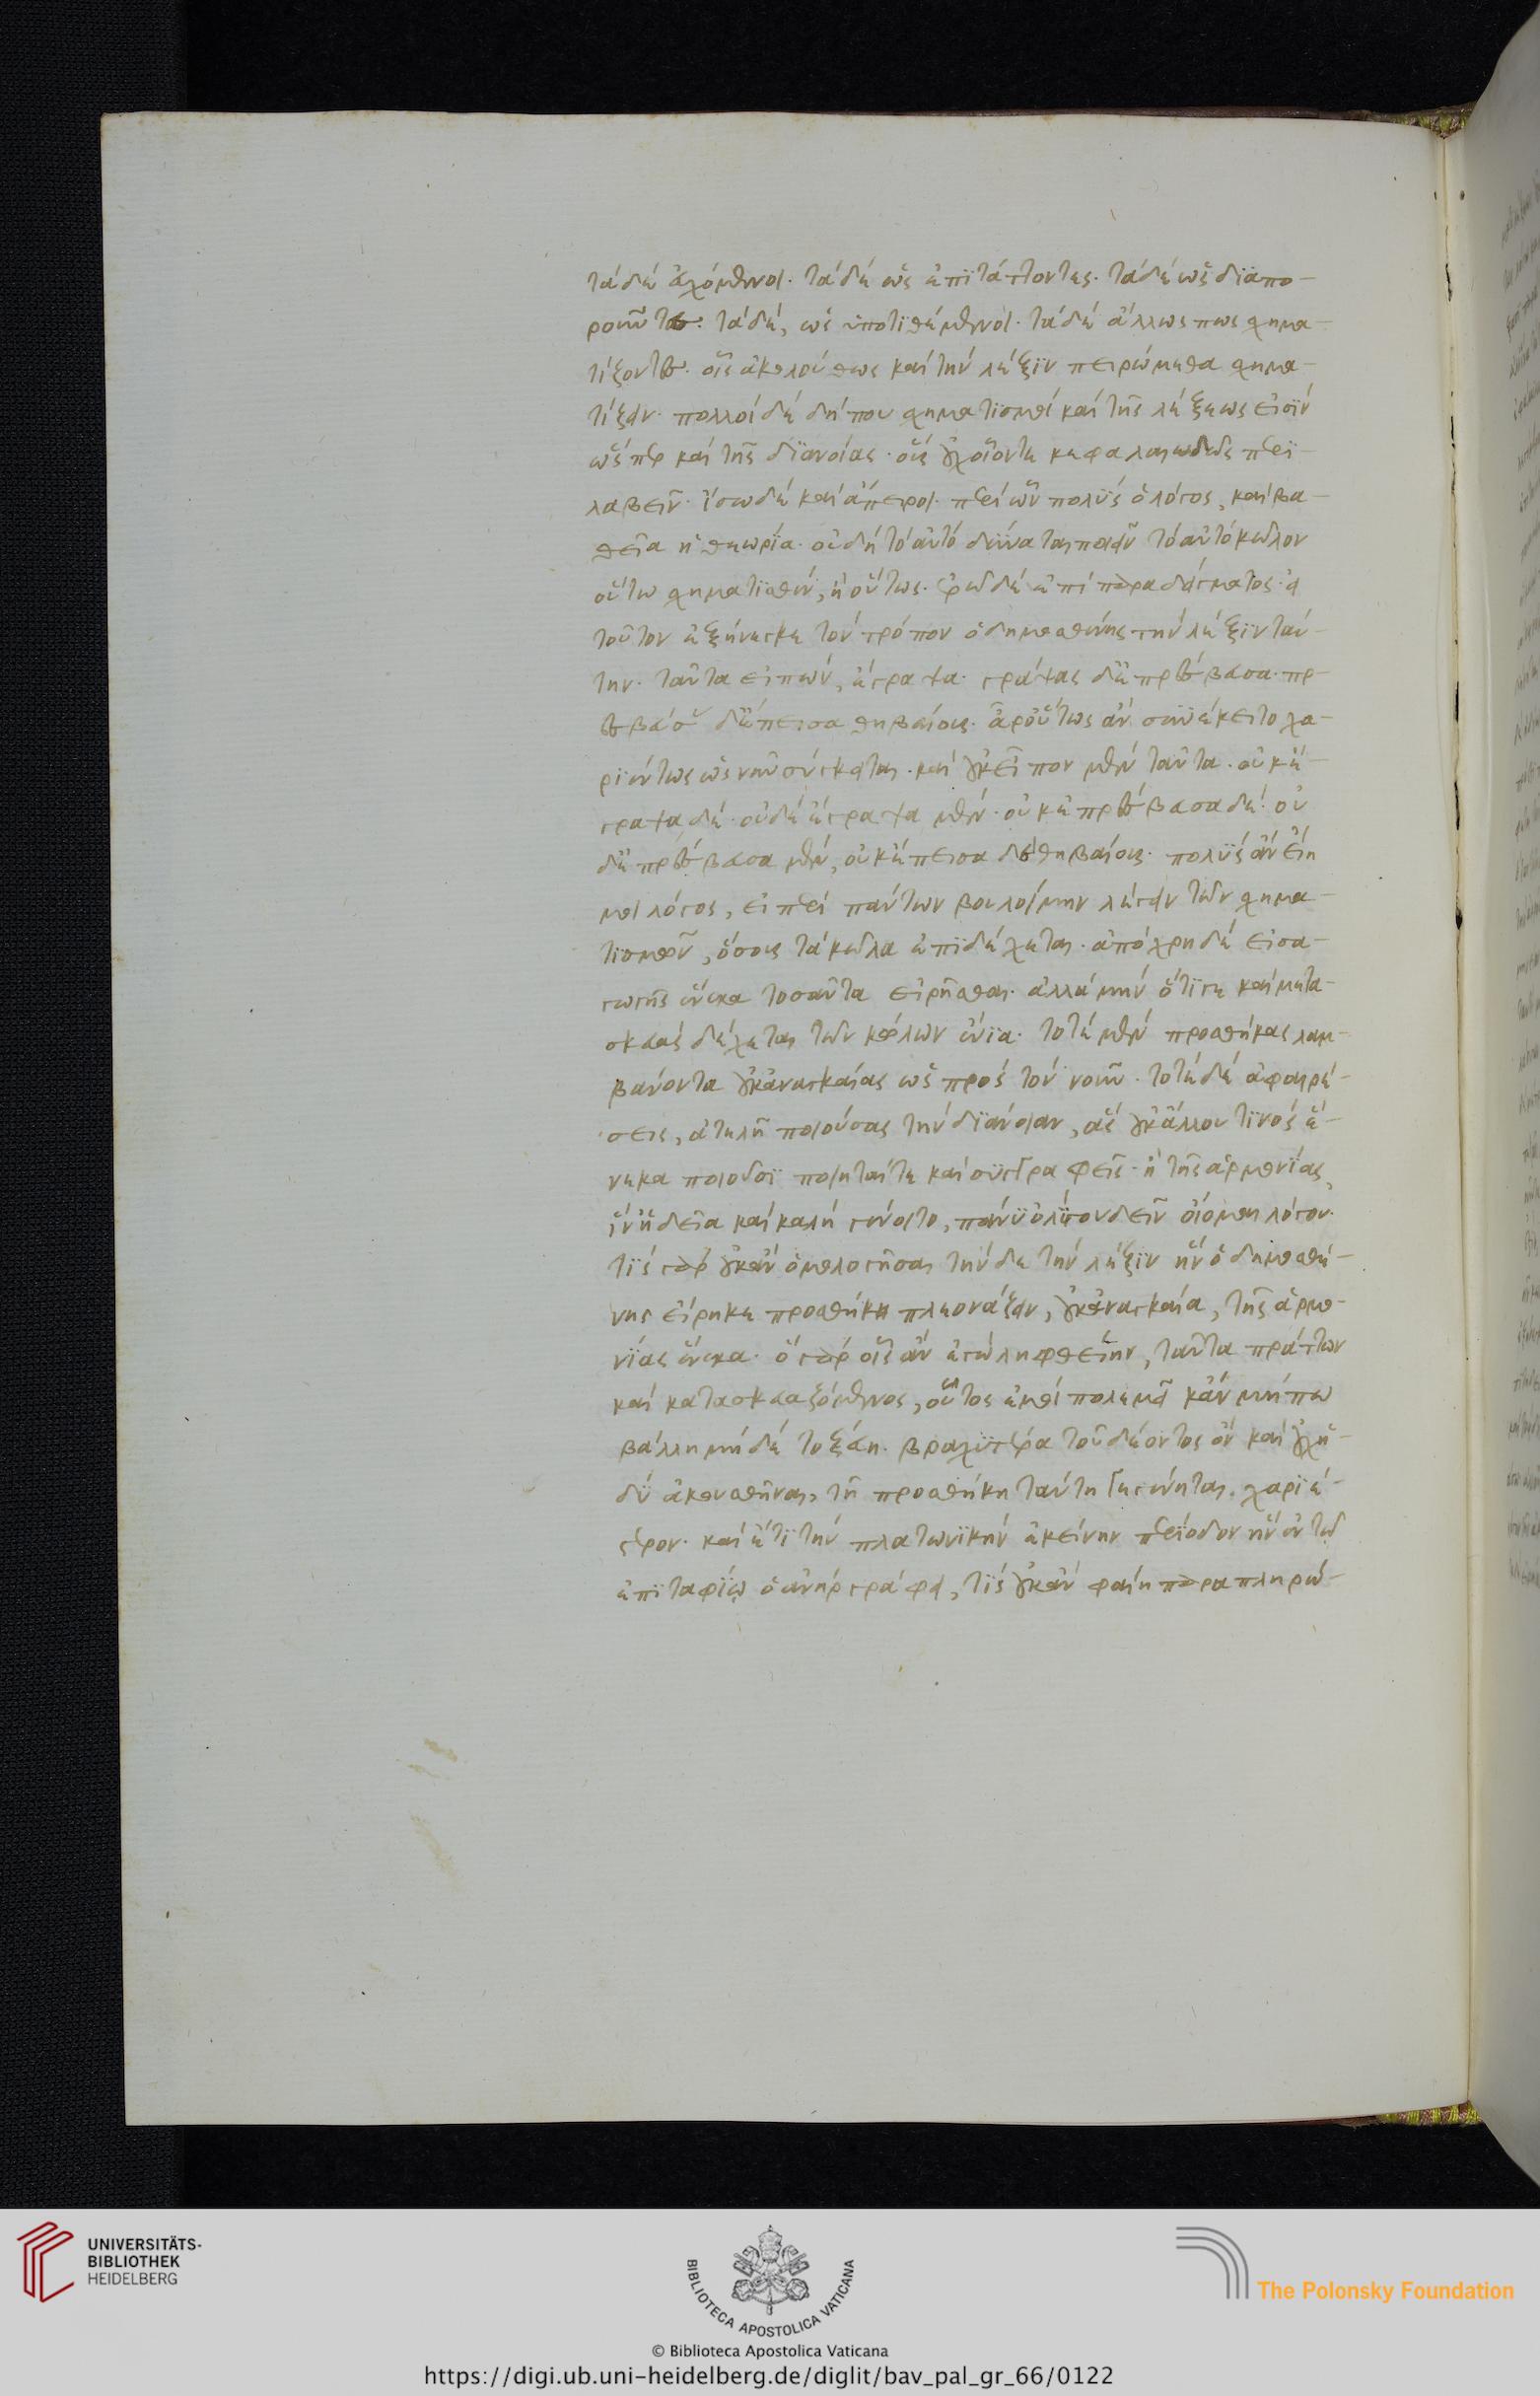 τὰ δὲ εὐχόμενοι. τὰ δὲ ὡς ἐπιτάττοντες. τὰ δὲ ὡς διαπο-
ροῦντες. τὰ δὲ, ὡς ὑποτιθέμενοι. τὰ δὲ ἄλλως πως σχημα-
τίζοντες. οἷς ἀκολούθως καὶ τὴν λέξιν πειρώμεθα σχημα-
τίζειν. πολλοὶ δὲ δήπου σχηματισμοὶ καὶ τῆς λέξεως εἰσὶν
ὥσπερ καὶ τῆς διανοίας. οὓς οὐχ οἷόντε κεφαλαιωδῶς περι-
λαβεῖν. ἴσως δὲ καὶ ἄπειροι. περὶ ὧν πολὺς ὁ λόγος, καὶ βα-
θεῖα ἡ θεωρία. οὐ δὴ τὸ αὐτὸ δύναται ποιεῖν τὸ αὐτὸ κῶλον
οὕτω σχηματισθὲν, ἢ οὕτως. ἐρῶ δὲ ἐπὶ παραδείγματος. εἰ
τοῦτον ἐξήνεγκε τὸν τρόπον ὁ δημοσθένης τὴν λέξιν ταύ-
την. ταῦτα εἰπὼν, ἔγραψα. γράψας δὲ ἐπρέσβευσα. πρ-
εσβεύσας δὲ ἔπεισα θηβαίους. ἆρ' οὕτως ἂν συνέκειτο χα-
ριέντως ὡς νῦν σύγκειται. καὶ οὐκ εἶπον μὲν ταῦτα. οὐκ ἔ-
γραψα δέ. οὐδὲ ἔγραψα μὲν. οὐκ ἐπρέσβευσα δέ. οὐ
δὲ ἐπρέσβευσα μὲν, οὐκ ἔπεισα δὲ θηβαίους. πολὺς ἂν εἴη
μοι λόγος, εἰ περὶ πάντων βουλοίμην λέγειν τῶν σχημα-
τισμῶν, ὅσους τὰ κῶλα ἐπιδέχεται. ἀπόχρη δὲ εἰσα-
γωγῆς ἕνεκα τοσαῦτα εἰρῆσθαι. ἀλλὰ μὴν ὅτι γε καὶ μετα-
σκευὰς δέχεται τῶν κώλων ἔνια. τοτὲ μὲν προσθήκας λαμ-
βάνοντα οὐκ ἀναγκαίας ὡς πρὸς τὸν νοῦν. τοτὲ δὲ ἀφαιρέ-
σεις, ἀτελῆ ποιούσας τὴν διάνοιαν, ἃς οὐκ ἄλλου τινὸς ἕ-
νεκα ποιοῦσι ποιηταί τε καὶ συγγραφεῖς ἢ τῆς ἁρμονίας
ἵν' ἡδεῖα καὶ καλὴ γένοιτο, πάνυ ὀλίγου δεῖν οἴομαι λόγου.
τίς γὰρ οὐκ ἂν ὁμολογήσαι τήνδε τὴν λέξιν ἣν ὁ δημοσθέ-
νης εἴρηκε προσθήκη πλεονάζειν, οὐκ ἀναγκαία, τῆς ἁρμο-
νίας ἕνεκα. ὁ γὰρ οἷς ἂν ἐγὼ ληφθείην, ταῦτα πράττων
καὶ κατασκευαζόμενος, οὗτος ἐμοὶ πολεμεῖ κἂν μήπω
βάλλῃ μηδὲ τοξεύῃ. βραχύτερα τοῦ δέοντος ὂν καὶ οὐχ ἡ-
δὺ ἀκουσθῆναι, τῇ προσθήκῃ ταύτῃ γεγένηται χαριέ-
στερον. καὶ ἔτι τὴν πλατωνικὴν ἐκείνην περίοδον ἣν ἐν τῷ
ἐπιταφίῳ ὁ ἀνὴρ γράφει, τίς οὐκ ἂν φαίη παραπληρώ-
UNIVERSITÄTS-
BIBLIOTHEK
HEIDELBERG
BIBLIOTECA APOSTOLICA VATICANA
The Polonsky Foundation
© Biblioteca Apostolica Vaticana
https://digi.ub.uni-heidelberg.de/diglit/bav_pal_gr_66/0122